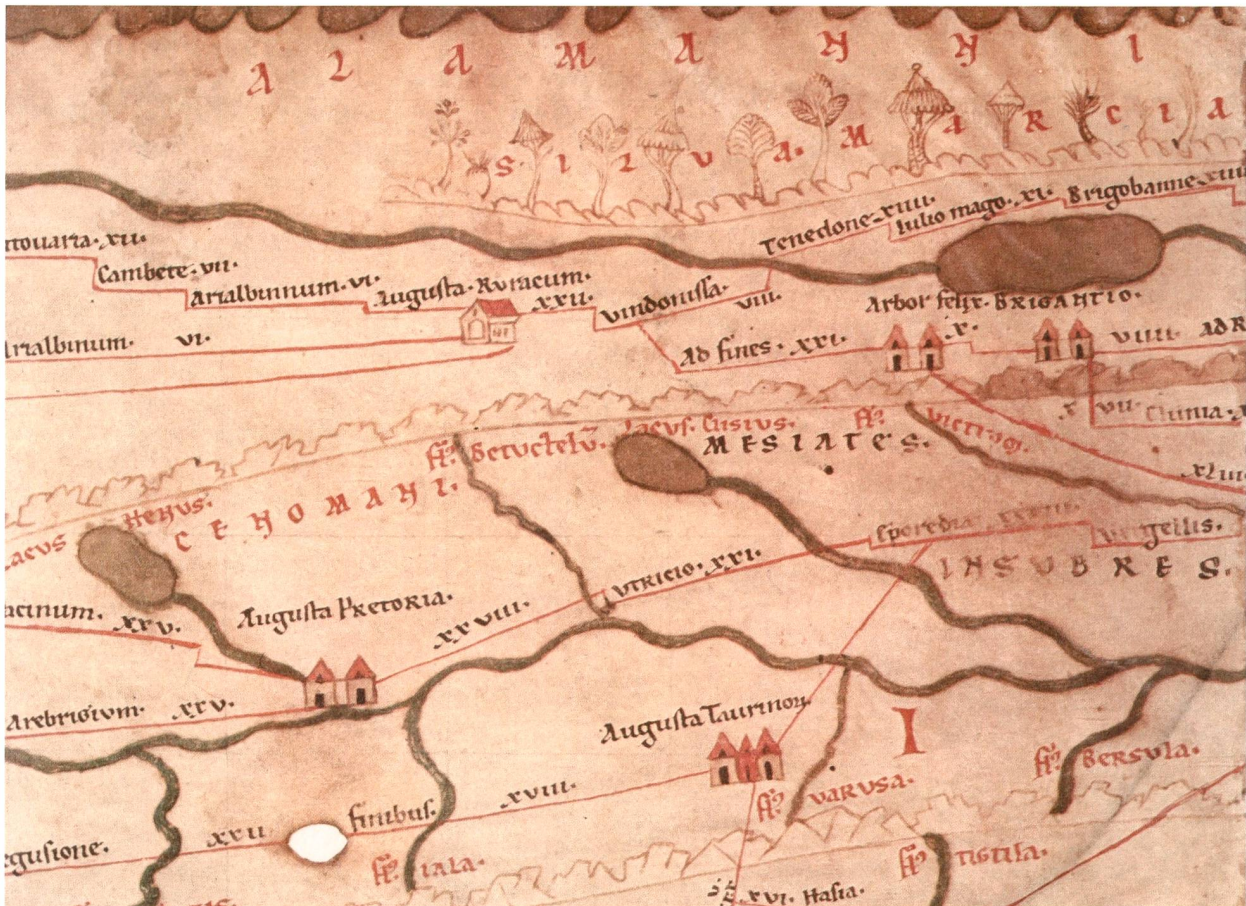 ALAMANNI
SILVA. MARCIA
Tenedone. XIIII.
Iulio mago. XI.
Brigobanne. XIII
touaria. XII.
Cambete. VII.
Arialbinnum. VI.
Augusta. Ruracum.
XXII.
Vindonissa.
VIII.
Arbor felix. BRIGANTIO.
Arialbinum. VI.
Ad fines. XXI.
X.
VIIII.
ADR
X VII
Clunia.
fl. Betuctelu.
Lacus. Clisius.
fl. Victium.
MESIATES.
XLIII
Lacus
Henus.
CENOMANI.
Eporedia XXXIII.
Vergellis.
Utricio. XXI.
INSUBRES.
acinum. XXV.
Augusta Pretoria.
XXVIII.
Arebrigium. XXV.
Augusta Taurinor.
I
fl. Bersula.
fl. Varusa.
XVIII.
finibus.
XXII
egusione.
fl. Iala.
fl.
XVI. Hasia.